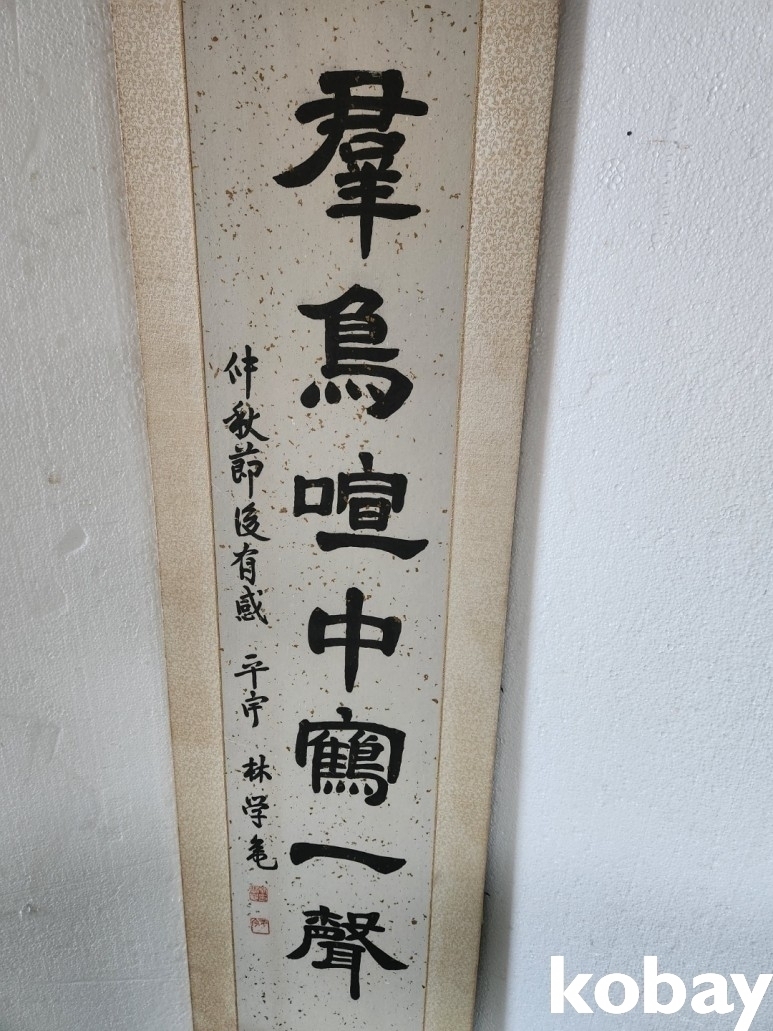 羣鳥喧中鶴一聲
仲秋節後有感 平宇 林学亀
kobay